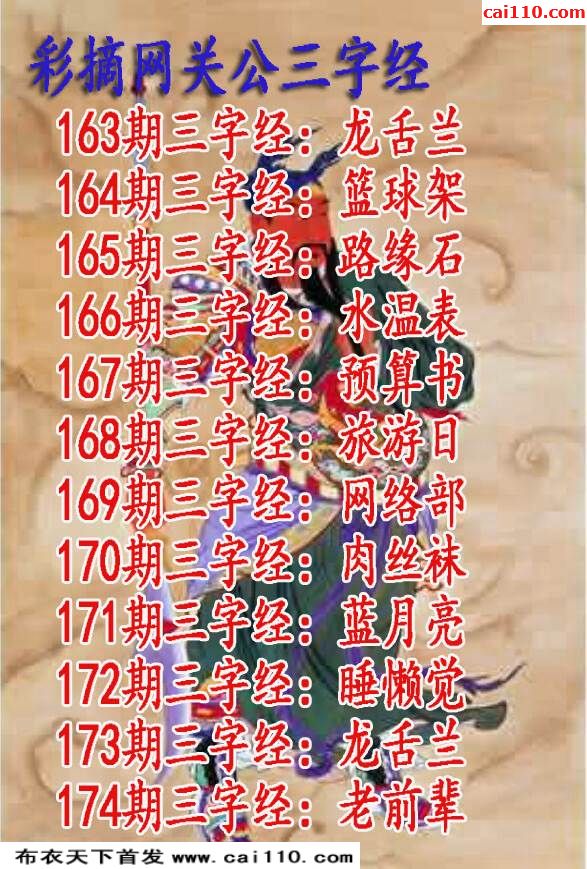 cai110.com
彩摘网关公三字经
163期三字经：龙舌兰
164期三字经：篮球架
165期三字经：路缘石
166期三字经：水温表
167期三字经：预算书
168期三字经：旅游日
169期三字经：网络部
170期三字经：肉丝袜
171期三字经：蓝月亮
172期三字经：睡懒觉
173期三字经：龙舌兰
174期三字经：老前辈
布衣天下首发 www.cai110.com